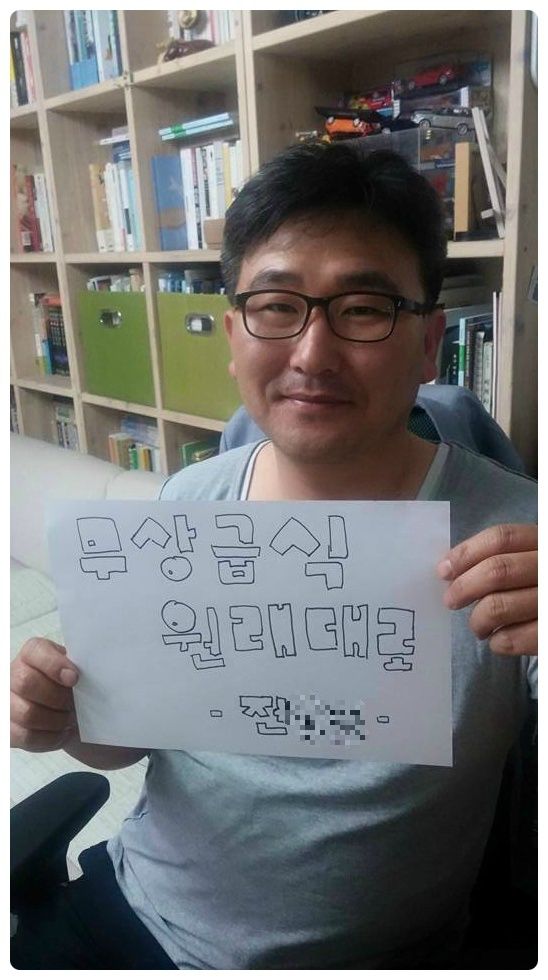 무상급식
원래대로
- 전